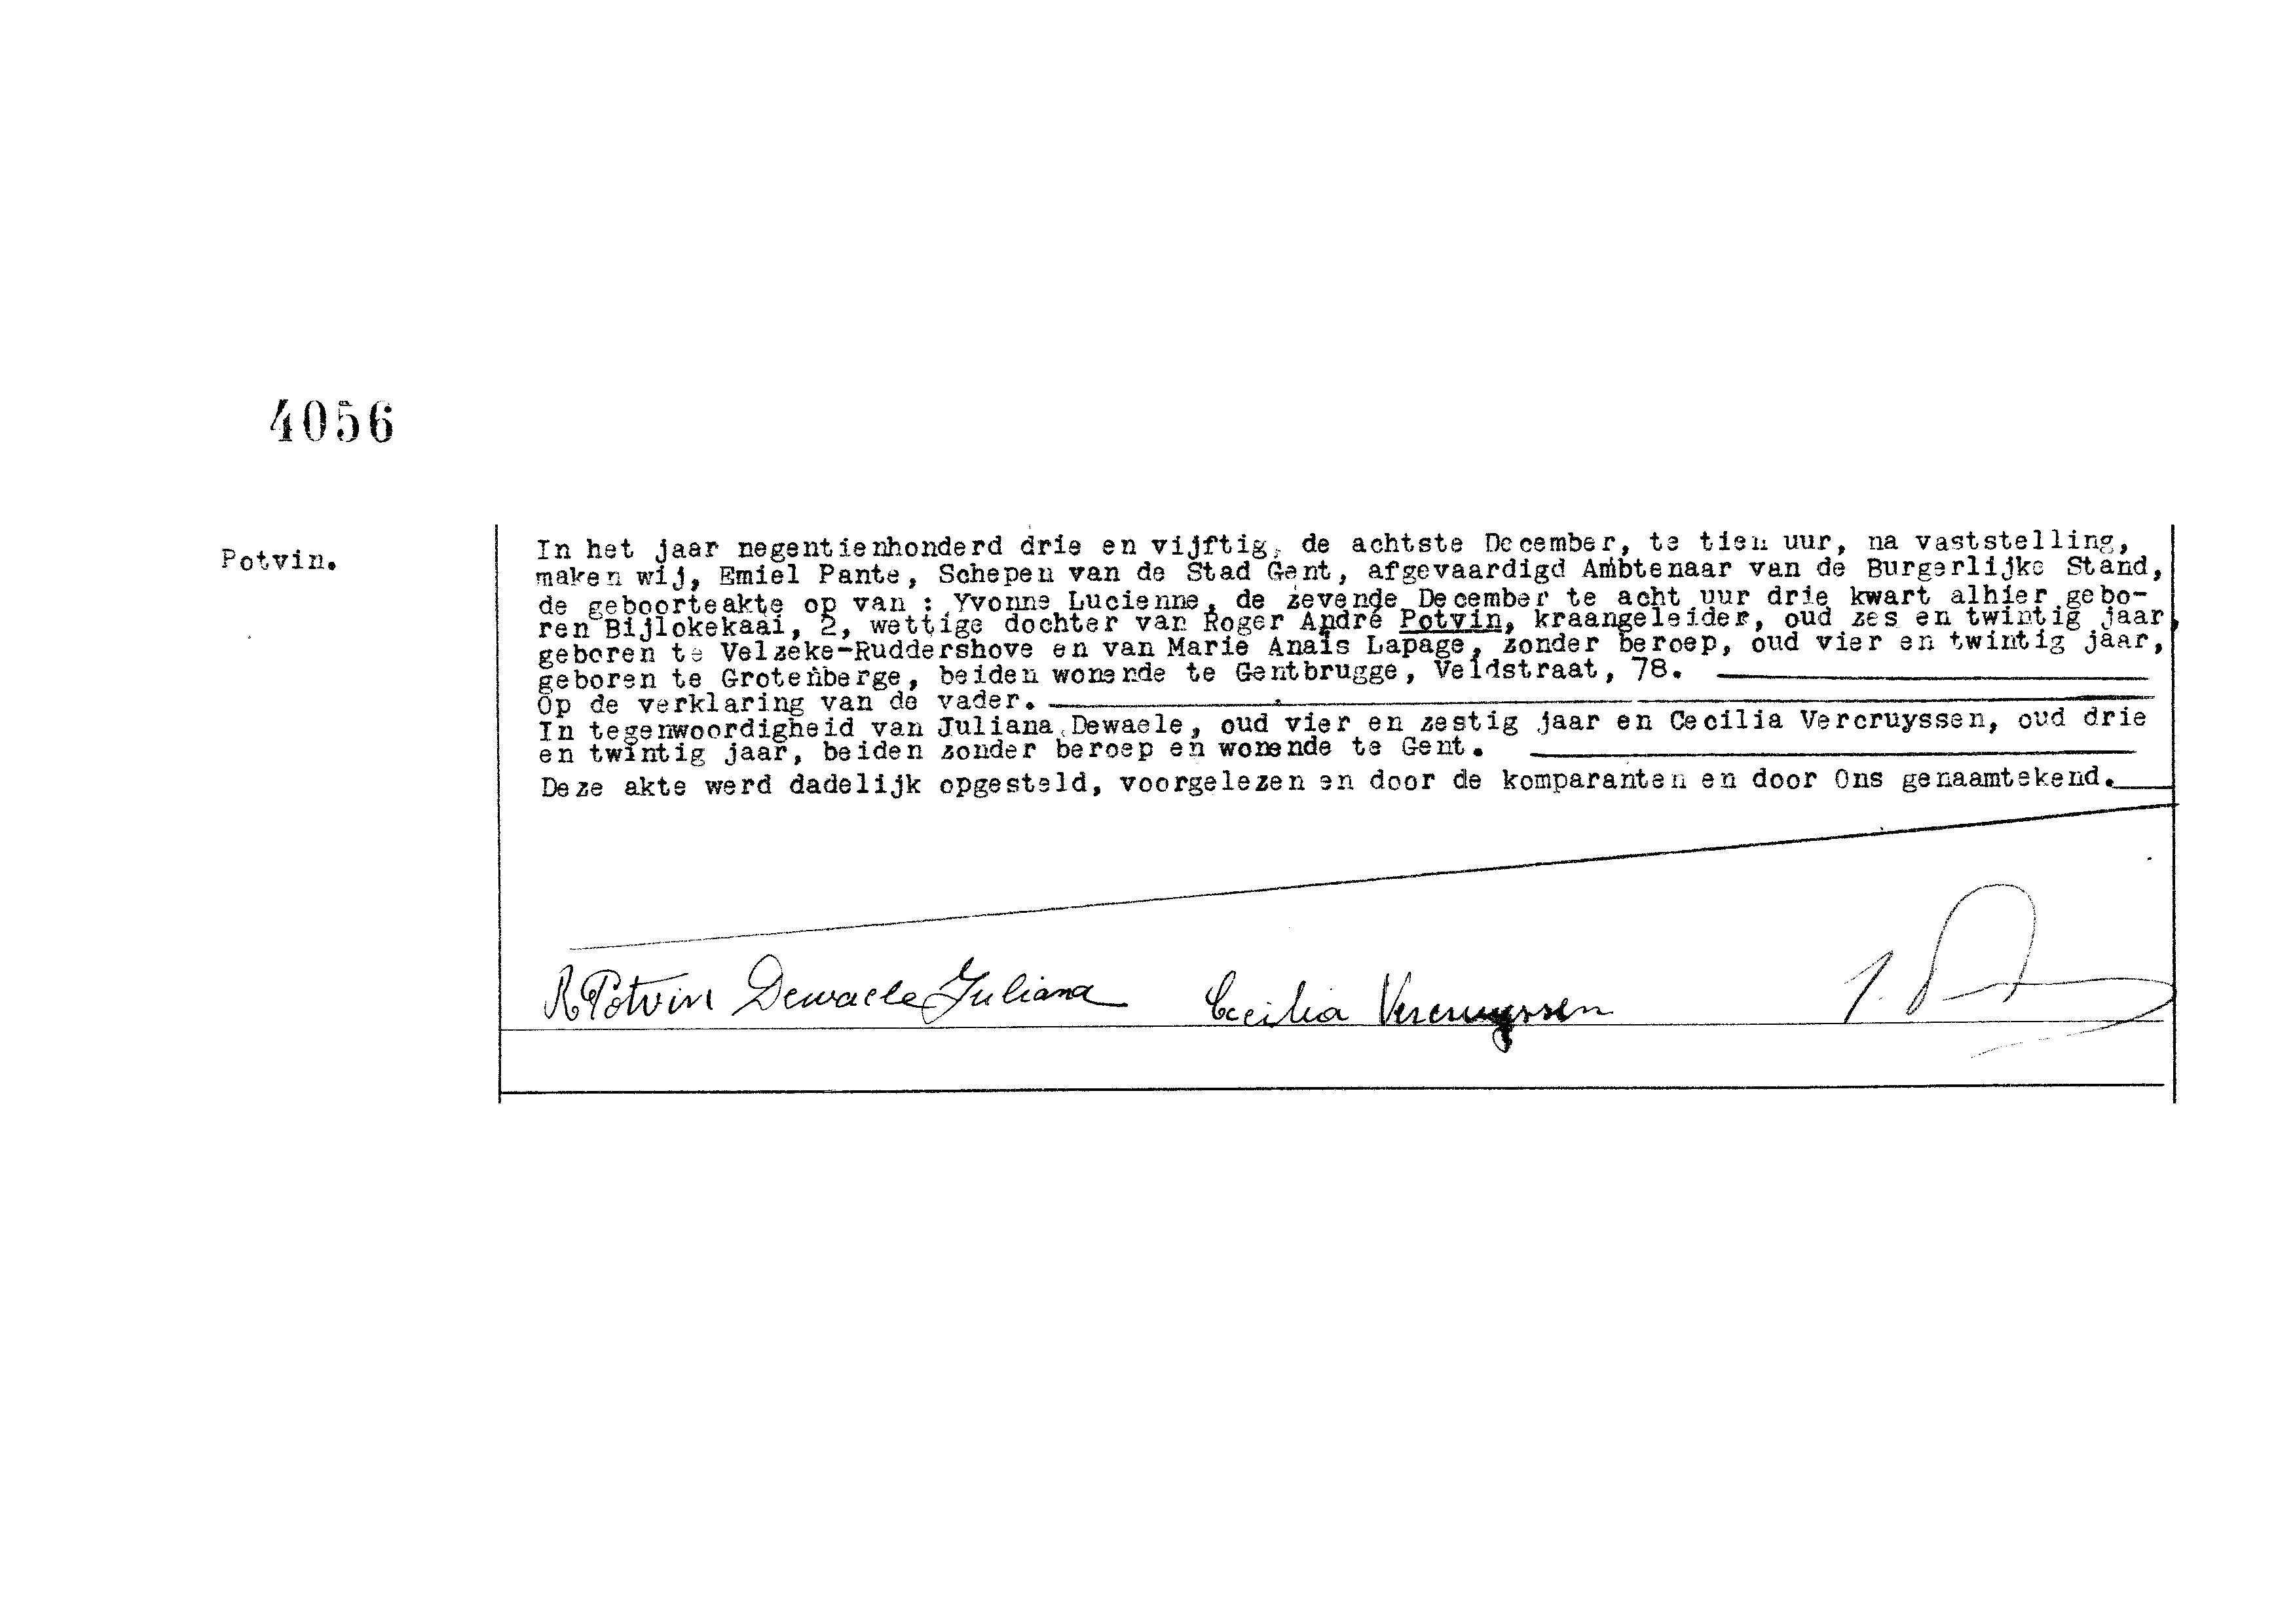 4056
Potvin.
In het jaar negentienhonderd drie en vijftig, de achtste December, te tien uur, na vaststelling,
maken wij, Emiel Pante, Schepen van de Stad Gent, afgevaardigd Ambtenaar van de Burgerlijke Stand,
de geboorteakte op van : Yvonne Lucienne, de zevende December te acht uur drie kwart alhier gebo-
ren Bijlokekaai, 2, wettige dochter van Roger André Potvin, kraangeleider, oud zes en twintig jaar,
geboren te Velzeke-Ruddershove en van Marie Anaïs Lapage, zonder beroep, oud vier en twintig jaar,
geboren te Grotenberge, beiden wonende te Gentbrugge, Veldstraat, 78.
Op de verklaring van de vader.
In tegenwoordigheid van Juliana Dewaele, oud vier en zestig jaar en Cecilia Vercruyssen, oud drie
en twintig jaar, beiden zonder beroep en wonende te Gent.
Deze akte werd dadelijk opgesteld, voorgelezen en door de komparanten en door Ons genaamtekend.
R Potvin Dewaele Juliana Cecilia Vercruyssen